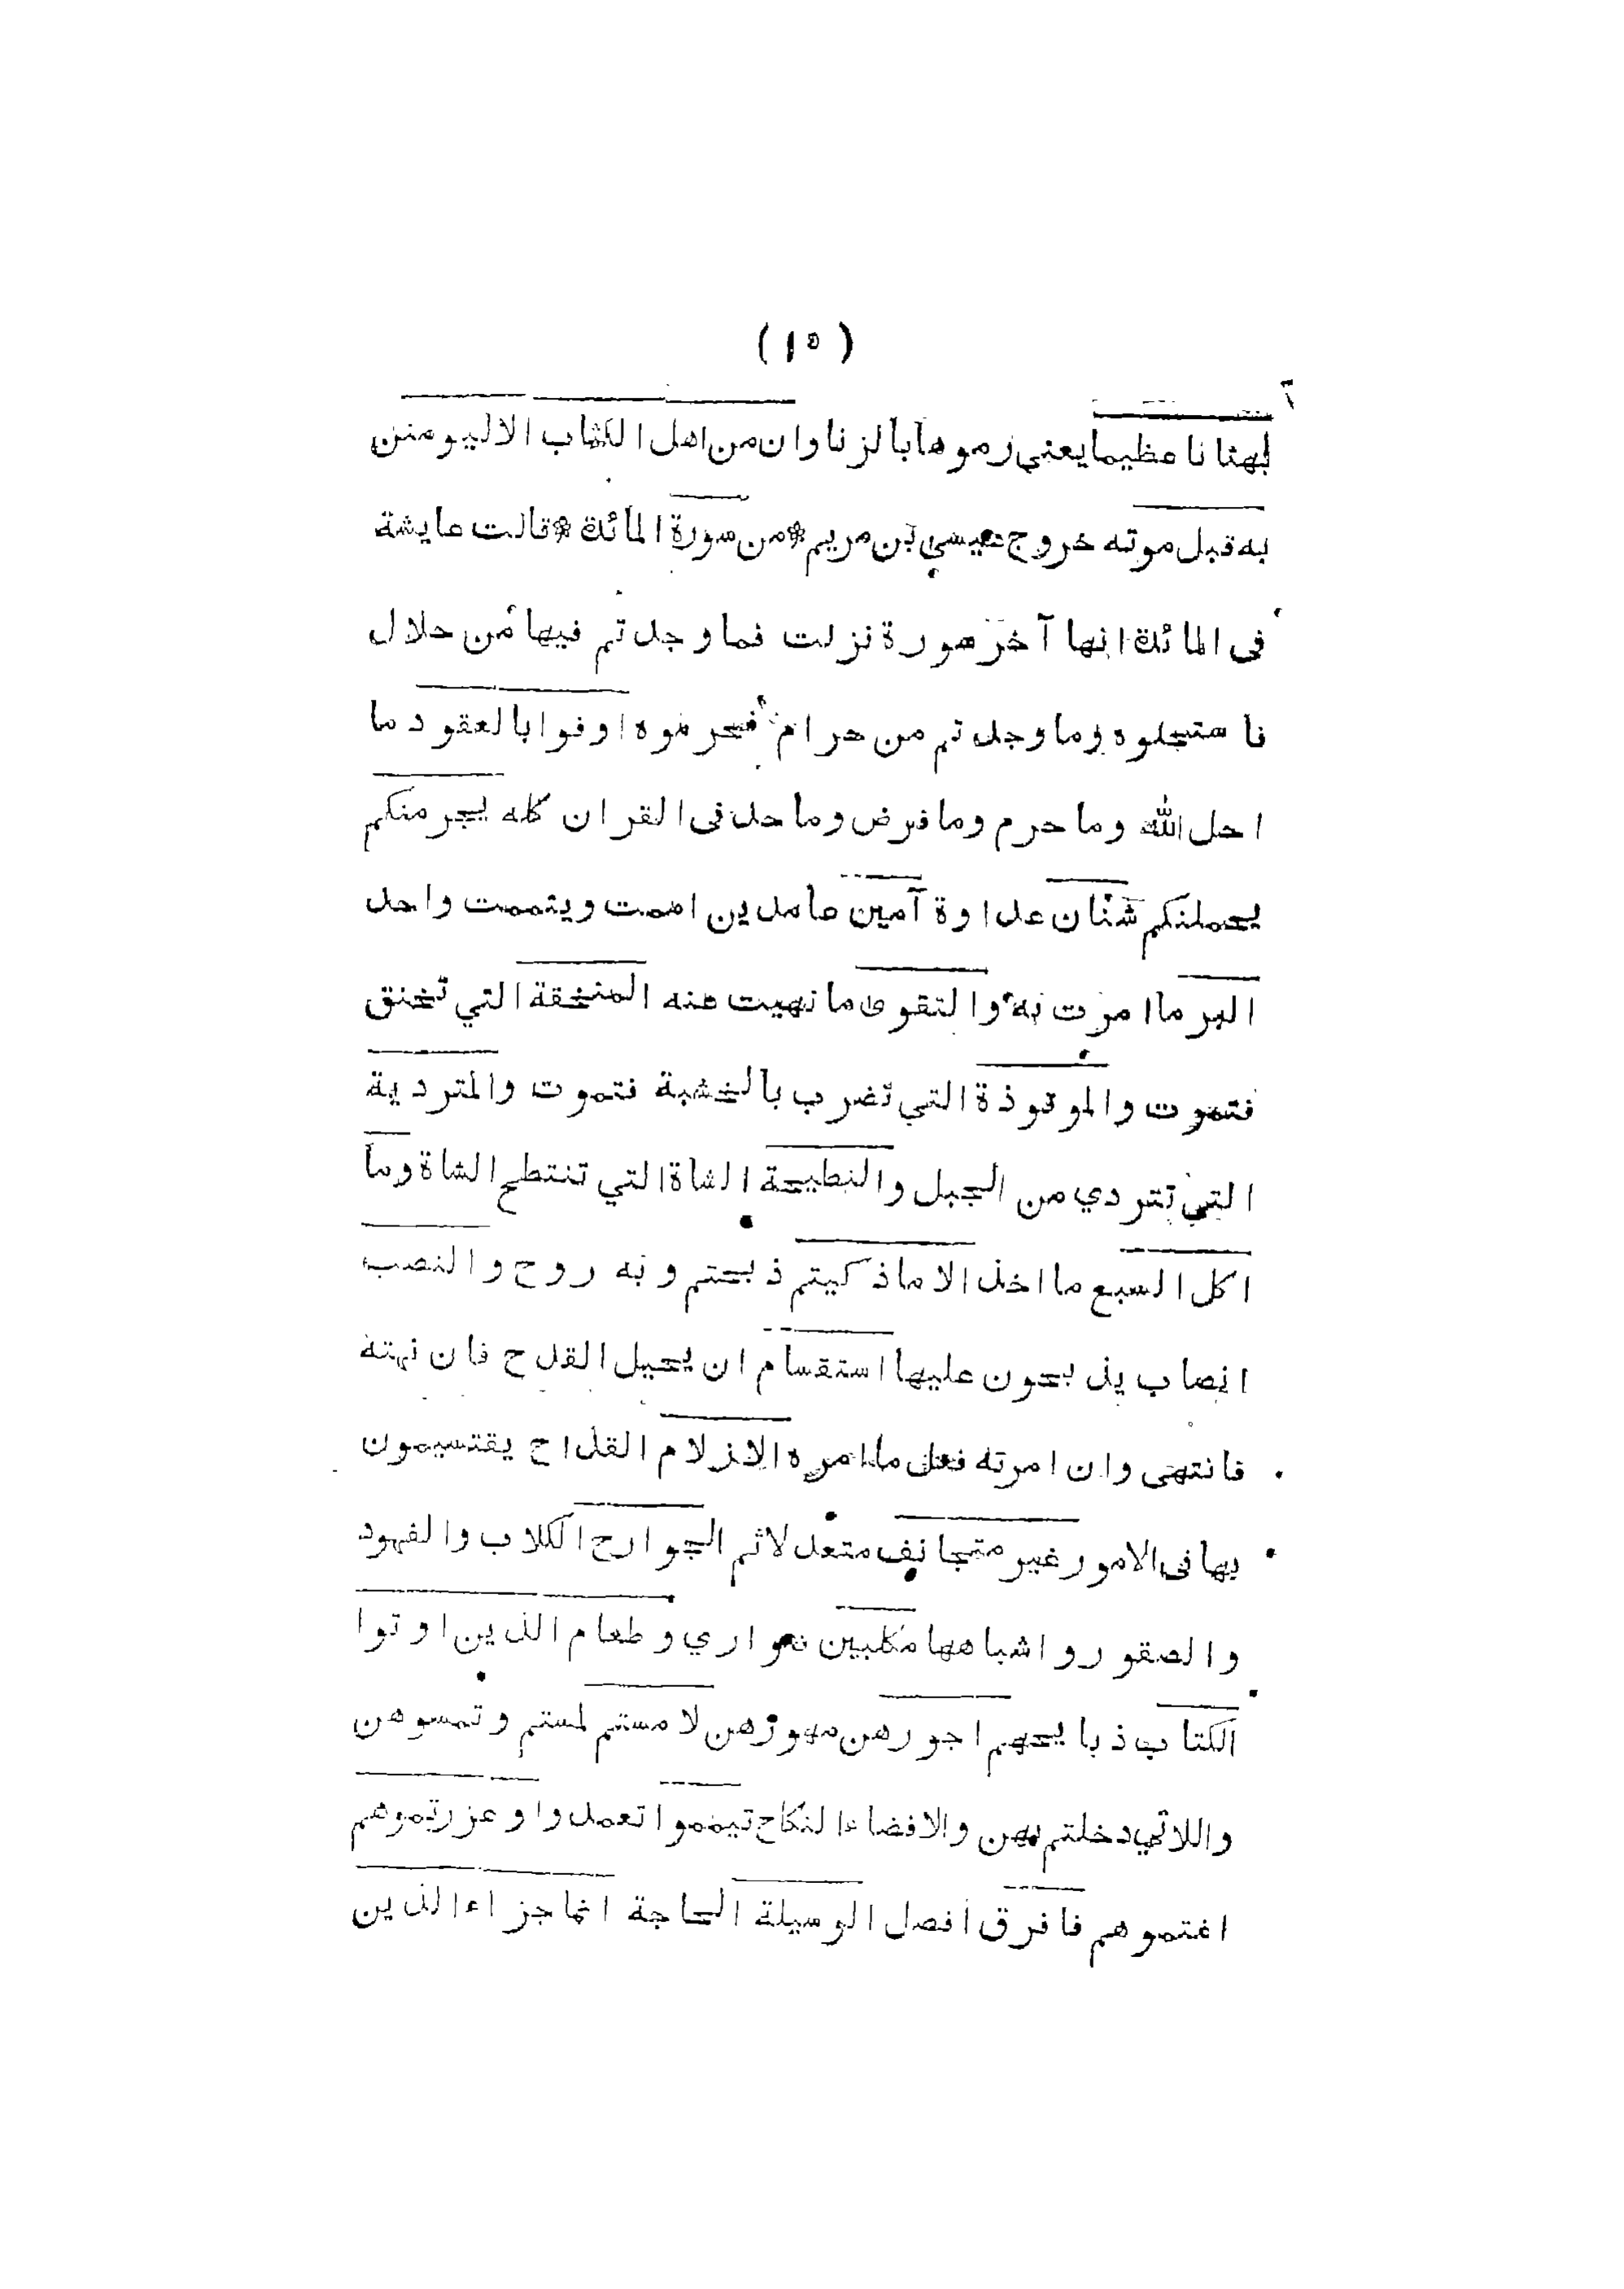 (١٥)
بهتانا عظيما يعني رموها بالزنا وان من اهل الكتاب الا ليومنن
به قبل موته خروج عيسي بن مريم * من سورة المائدة * قالت عايشة
فى المائدة انها آخر سورة نزلت فما وجدتم فيها من حلال
فاستحلوه وما وجدتم من حرام فحرموه اوفوا بالعقود ما
احل الله وما حرم وما فرض وما حد فى القران كله يجرمنكم
يحملنكم شنآن عداوة آمين عامدين اممت ويتممت واحد
البر ما امرت به والتقوى ما نهيت عنه المنخقة التي تخنق
فتموت والموقوذة التي تضرب بالخشبة فتموت والمتردية
التي تتردي من الجبل والنطيحة الشاة التي تنتطح الشاة وما
اكل السبع ما اخذ الا ما ذكيتم ذبحتم وبه روح والنصب
انصاب يذبحون عليها استقسام ان يحيل القدح فان نهته
فانتهى وان امرته فعل ما امره الازلام القداح يقتسيمون
بها فى الامور غير متجانف متعد لاثم الجوارح الكلاب والفهود
والصقور واشباهها مكلبين ضواري وطعام الذين اوتوا
الكتاب ذبايحهم اجورهن مهورهن لامستم لمستم وتمسوهن
واللاتي دخلتم بهن والافضاء النكاح تيمموا تعمدوا وعزرتموهم
اغتموهم فافرق افصل الوسيلة الحاجة انما جزاء الذين